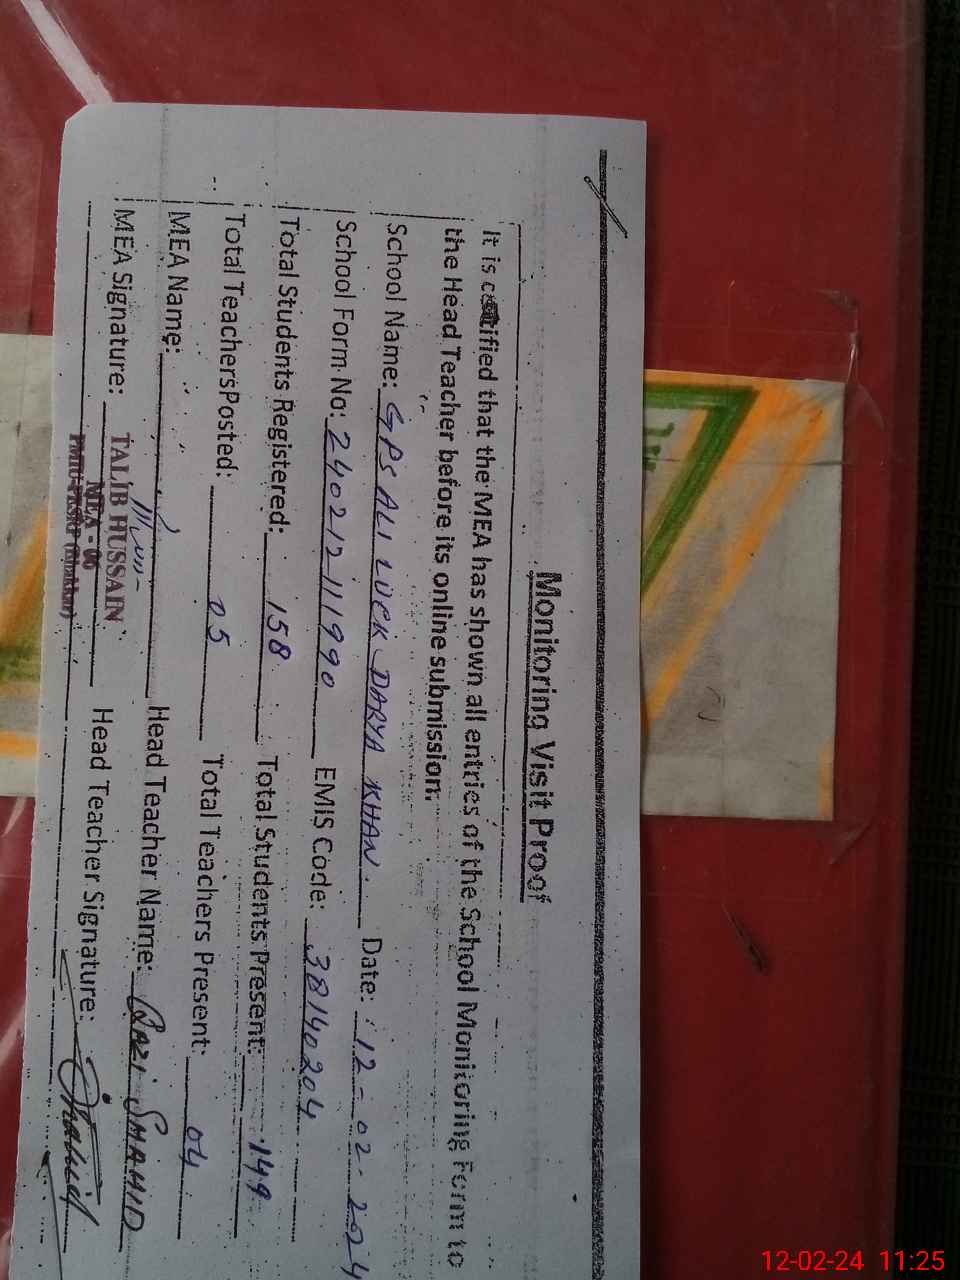 Monitoring Visit Proof
It is certified that the MEA has shown all entries of the School Monitoring Form to
the Head Teacher before its online submission.
School Name: GPS ALI LUCK DARYA KHAN. Date: 12-02-2024
School Form No: 240212111990 EMIS Code: 38140204
Total Students Registered: 158 Total Students Present: 149
Total Teachers Posted: 05 Total Teachers Present: 04
MEA Name: Head Teacher Name: QAZI SHAHID
MEA Signature: TALIB HUSSAIN Head Teacher Signature:
MEA - 06
12-02-24 11:25